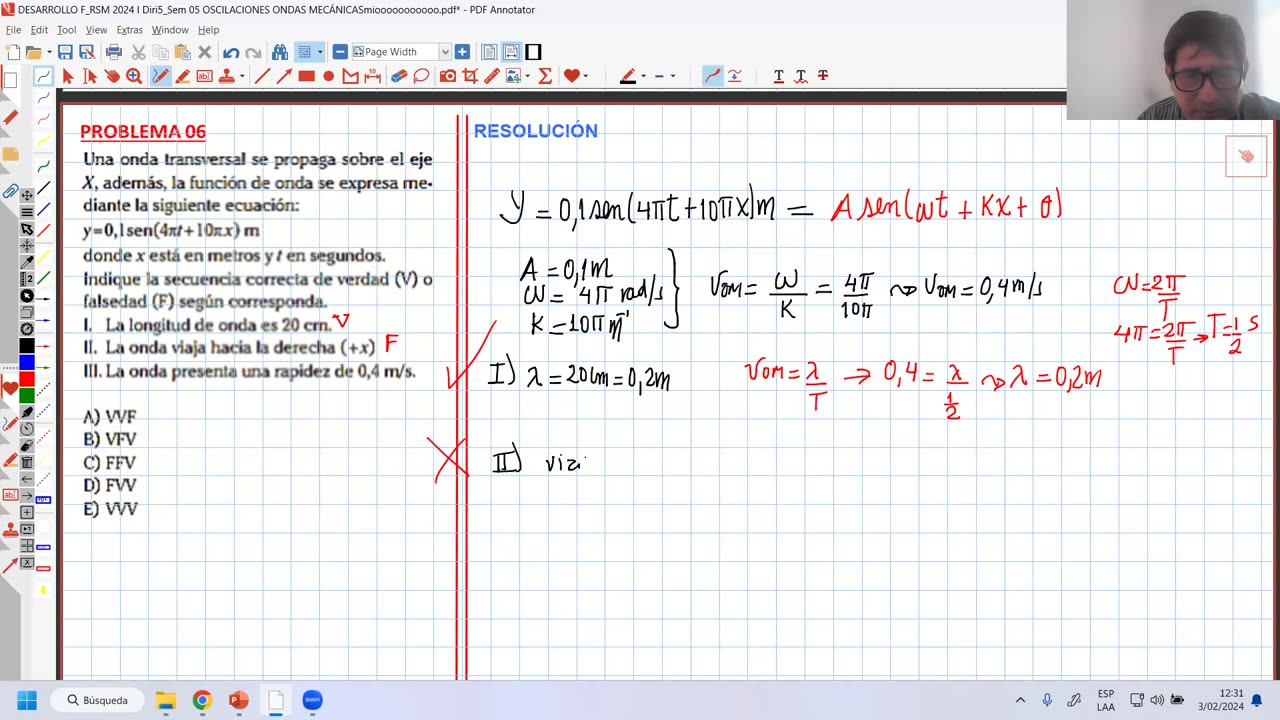 DESARROLLO F_RSM 2024 I Diri5_Sem 05 OSCILACIONES ONDAS MECÁNICASmiooooooooooo.pdf* - PDF Annotator
File Edit Tool View Extras Window Help
Page Width
PROBLEMA 06
Una onda transversal se propaga sobre el eje
X, además, la función de onda se expresa me-
diante la siguiente ecuación:
y=0,1sen(4πt+10πx) m
donde x está en metros y t en segundos.
Indique la secuencia correcta de verdad (V) o
falsedad (F) según corresponda.
I. La longitud de onda es 20 cm. V
II. La onda viaja hacia la derecha (+x) F
III. La onda presenta una rapidez de 0,4 m/s.
A) VVF
B) VFV
C) FFV
D) FVV
E) VVV
RESOLUCIÓN
y = 0,1sen(4πt+10πx)m = A sen(ωt + Kx + θ)
A = 0,1m
ω = 4π rad/s
K = 10π m⁻¹
VOM = ω/K = 4π/10π ⇝ VOM = 0,4 m/s
ω = 2π/T
4π = 2π/T → T = 1/2 s
I) λ = 20cm = 0,2m
VOM = λ/T → 0,4 = λ/(1/2) ⇝ λ = 0,2m
II)
Búsqueda
zoom
ESP
LAA
12:31
3/02/2024